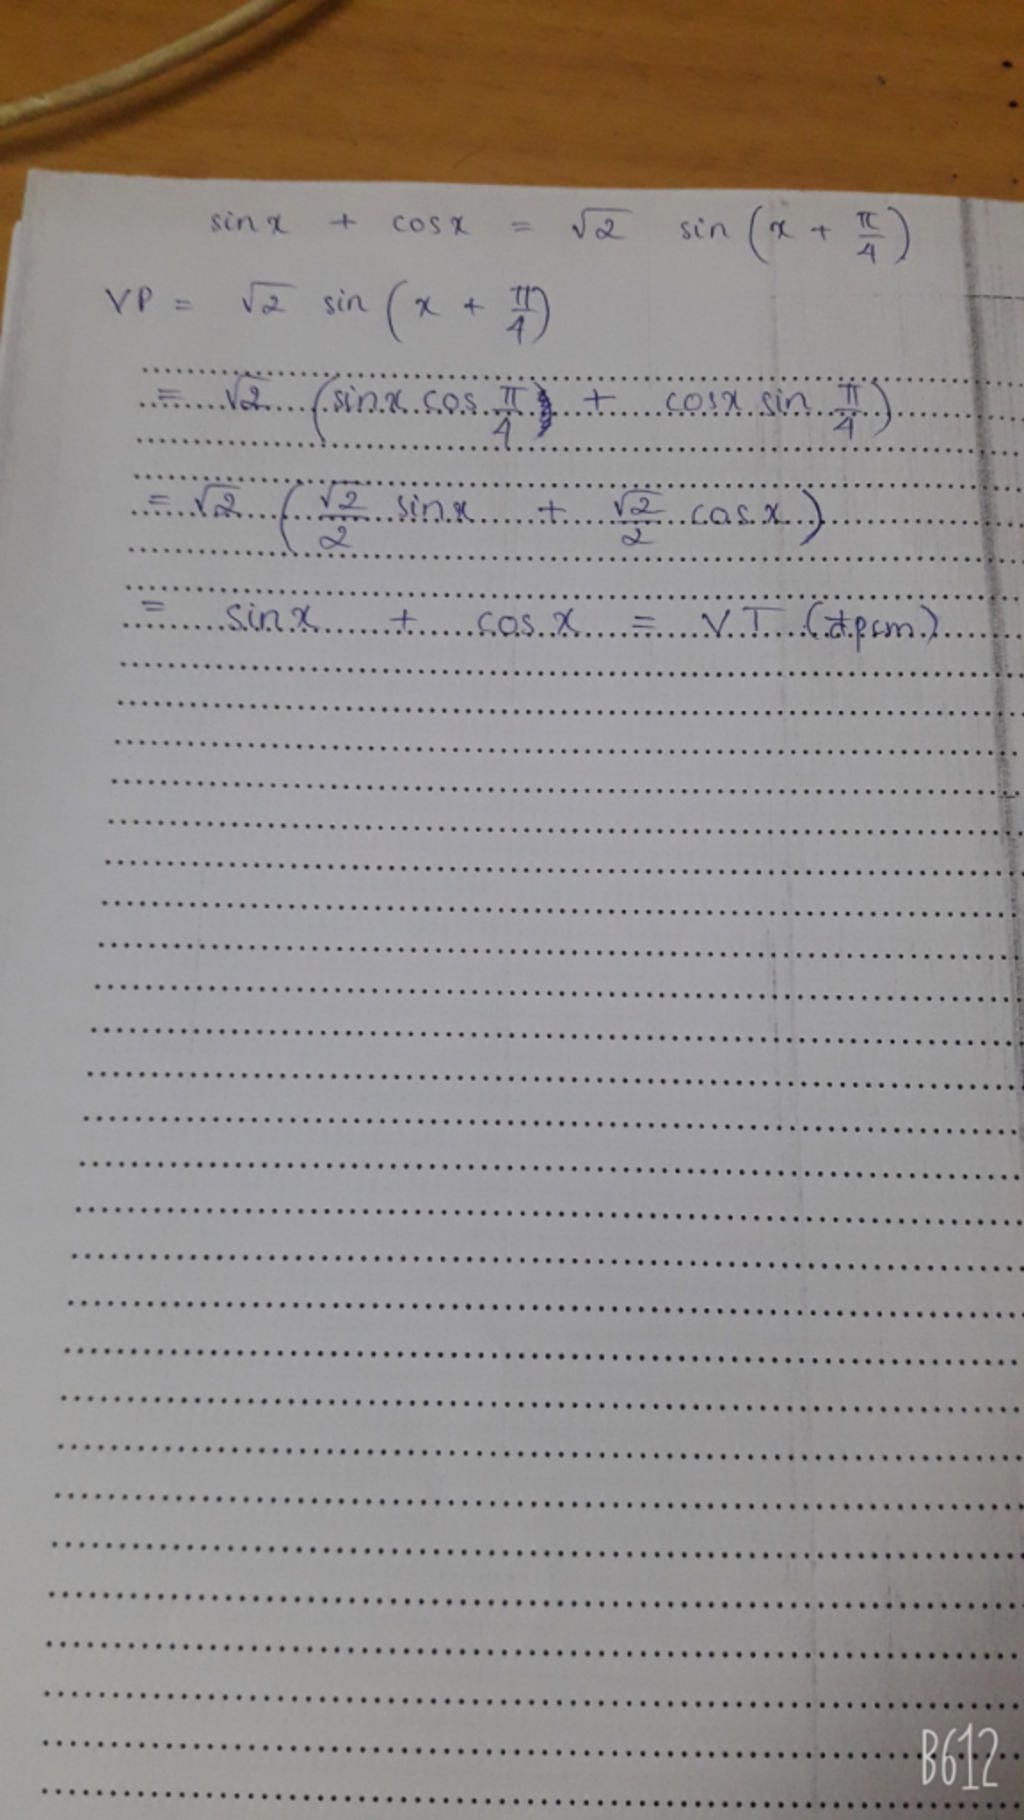 sinx + cosx = √2 sin (x + π/4)
VP = √2 sin (x + π/4)
= √2 (sinx cos π/4 + cosx sin π/4)
= √2 (√2/2 sinx + √2/2 cosx)
= sinx + cosx = VT (đpcm)
B612